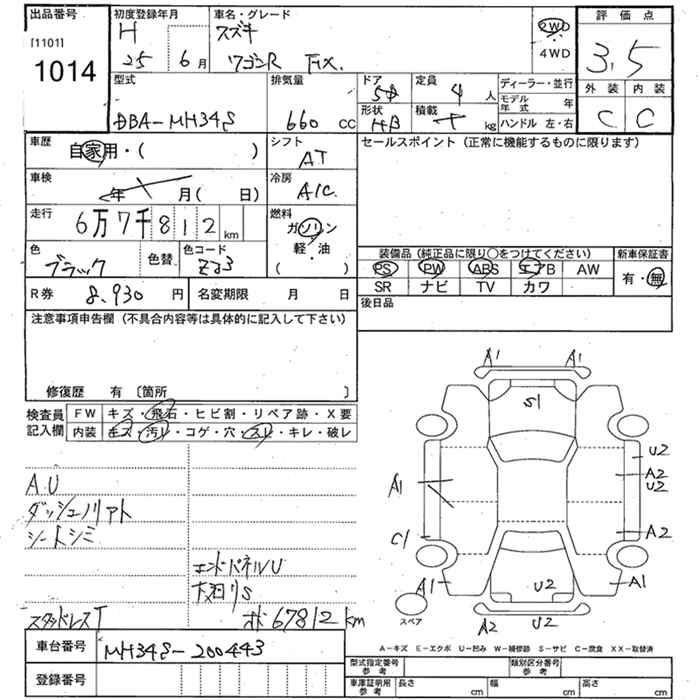 出品番号
[1101]
1014
初度登録年月
H
25 6月
車名・グレード
スズキ
ワゴンR FIX.
2WD
4WD
評価点
3.5
外装 内装
C C
型式
DBA-MH34S
排気量
660 cc
ドア
5D
定員
4人
形状
HB
積載
kg
ディーラー・並行
モデル年式 年
ハンドル 左・右
車歴
自家用・( )
シフト
AT
セールスポイント(正常に機能するものに限ります)
車検
年 月( 日)
冷房
A/C.
走行
6万7千812km
燃料
ガソリン
軽・油
( )
色
ブラック
色替
色コード
ZJ3
装備品(純正品に限り○をつけてください)
新車保証書
PS PW ABS エアB AW
SR ナビ TV カワ
有・無
R券 8,930円
名変期限 月 日
後日品
注意事項申告欄(不具合内容等は具体的に記入して下さい)
修復歴 有 〔箇所 〕
検査員記入欄
FW キズ・飛石・ヒビ割・リペア跡・X要
内装 キズ・汚レ・コゲ・穴・スレ・キレ・破レ
A1 A1
S1
U2
A1
A2
U2
C1
A2
A1
A1
U2
A2 U2
スペア
AU
シートシミ
エンドパネルU
スタッドレスT
67812km
車台番号 MH34S-200443
登録番号
A-キズ E-エクボ U-凹み W-補修跡 S-サビ C-腐食 XX-取替済
型式指定番号 参考
類別区分番号 参考
車庫証明用 参考
長さ cm
幅 cm
高さ cm